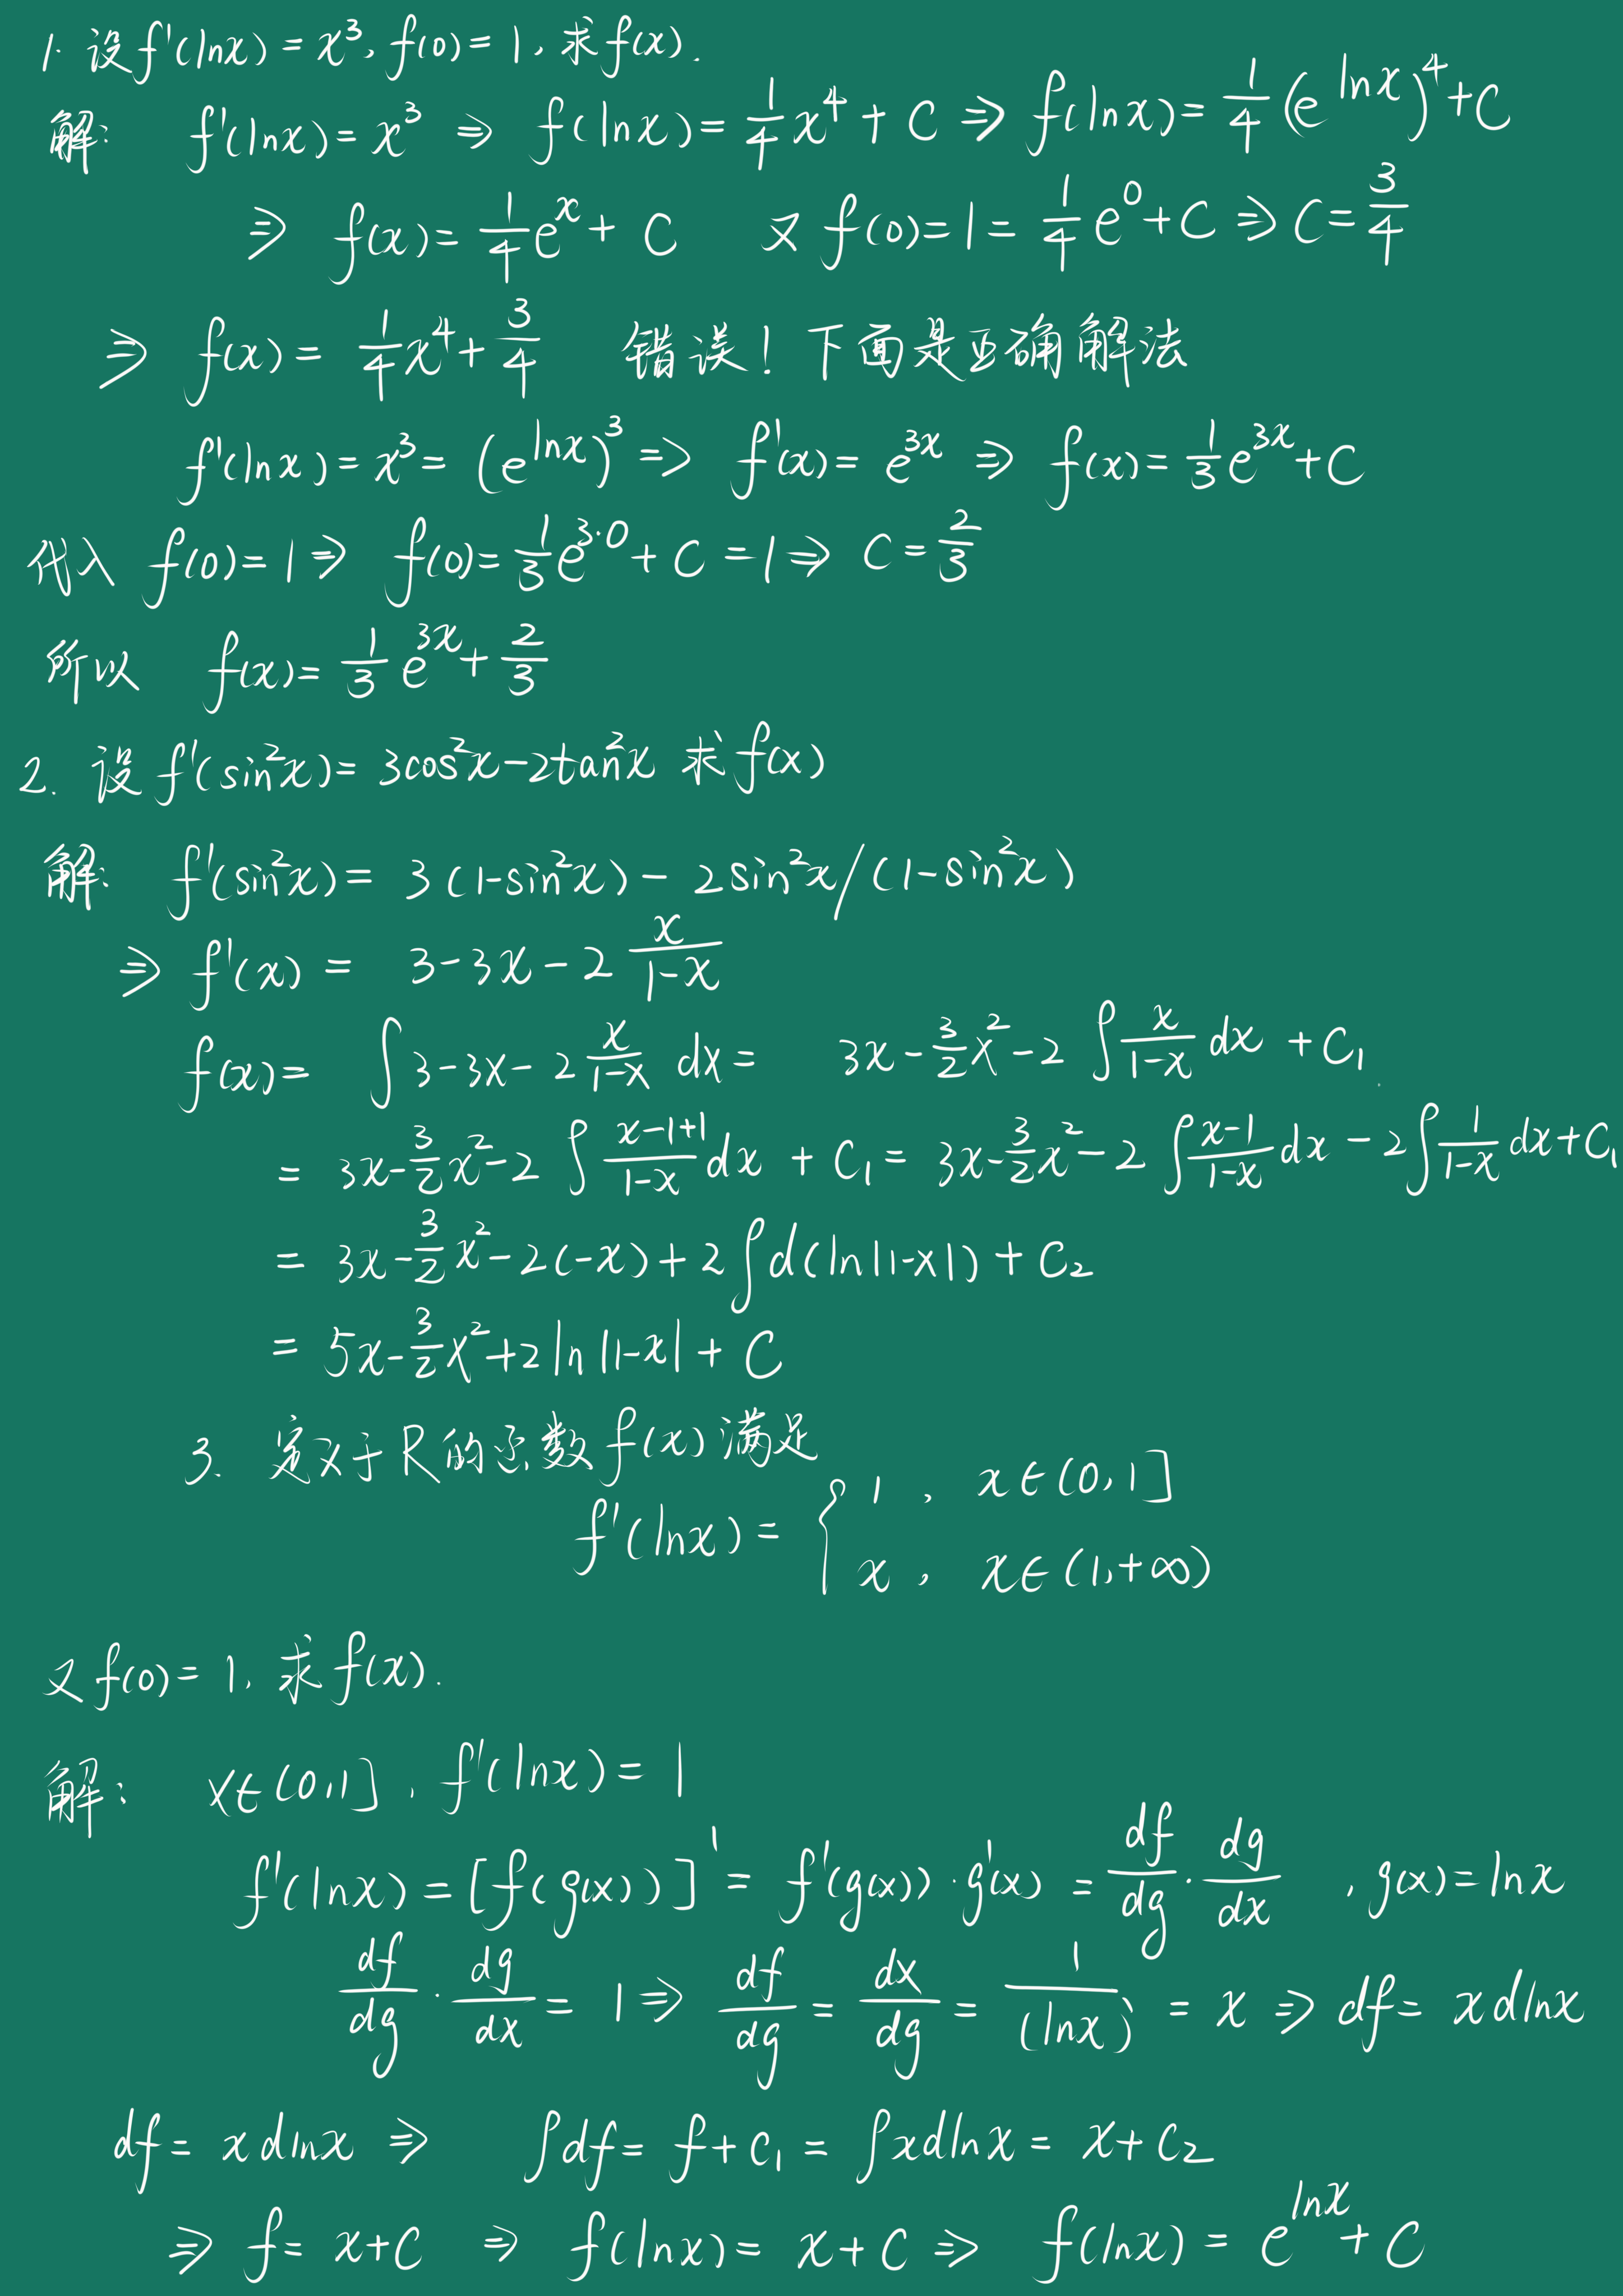 1. 设f'(lnx)=x³, f(0)=1, 求f(x).
解: f'(lnx)=x³ ⇒ f(lnx)=\frac{1}{4}x⁴+C ⇒ f(lnx)=\frac{1}{4}(e^{lnx})⁴+C
⇒ f(x)=\frac{1}{4}e^x+C 又f(0)=1=\frac{1}{4}e⁰+C ⇒ C=\frac{3}{4}
⇒ f(x)=\frac{1}{4}x⁴+\frac{3}{4} 错误! 下面是正确解法
f'(lnx)=x³=(e^{lnx})³ ⇒ f'(x)=e^{3x} ⇒ f(x)=\frac{1}{3}e^{3x}+C
代入 f(0)=1 ⇒ f(0)=\frac{1}{3}e^{3·0}+C=1 ⇒ C=\frac{2}{3}
所以 f(x)=\frac{1}{3}e^{3x}+\frac{2}{3}
2. 设f'(sin²x)=3cos²x-2tan²x 求f(x)
解: f'(sin²x)=3(1-sin²x)-2sin²x/(1-sin²x)
⇒ f'(x)=3-3x-2\frac{x}{1-x}
f(x)=∫3-3x-2\frac{x}{1-x}dx=3x-\frac{3}{2}x²-2∫\frac{x}{1-x}dx+C₁.
=3x-\frac{3}{2}x²-2∫\frac{x-1+1}{1-x}dx+C₁=3x-\frac{3}{2}x²-2∫\frac{x-1}{1-x}dx-2∫\frac{1}{1-x}dx+C₁
=3x-\frac{3}{2}x²-2(-x)+2∫d(ln|1-x|)+C₂
=5x-\frac{3}{2}x²+2ln|1-x|+C
3. 定义于R的函数f(x)满足
f'(lnx)={1, x∈(0,1]
x, x∈(1,+∞)
又f(0)=1, 求f(x).
解: x∈(0,1], f'(lnx)=1
f'(lnx)=[f(g(x))]'=f'(g(x))·g'(x)=\frac{df}{dg}·\frac{dg}{dx}, g(x)=lnx
\frac{df}{dg}·\frac{dg}{dx}=1 ⇒ \frac{df}{dg}=\frac{dx}{dg}=\frac{1}{(lnx)'}=x ⇒ df=xdlnx
df=xdlnx ⇒ ∫df=f+C₁=∫xdlnx=x+C₂
⇒ f=x+C ⇒ f(lnx)=x+C ⇒ f(lnx)=e^{lnx}+C